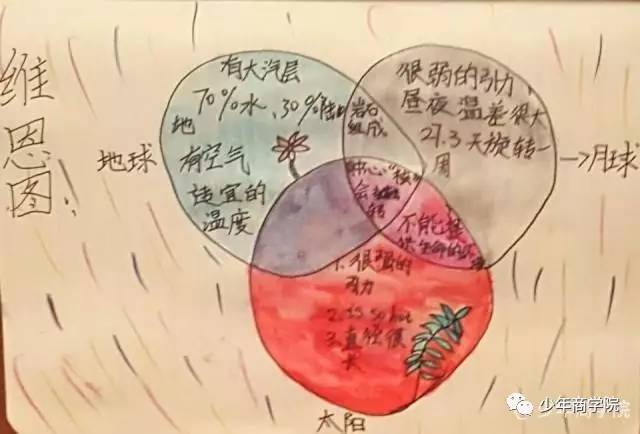 维恩图:
地球
有大汽层
70%水、30%陆
地
有空气
适宜的
温度
岩石
组成
很弱的引力
昼夜温差很大
27.3天旋转一
周
→月球
会
转
不能
1.很强的
引力
2.is so hot
3.直径很
大
太阳
少年商学院